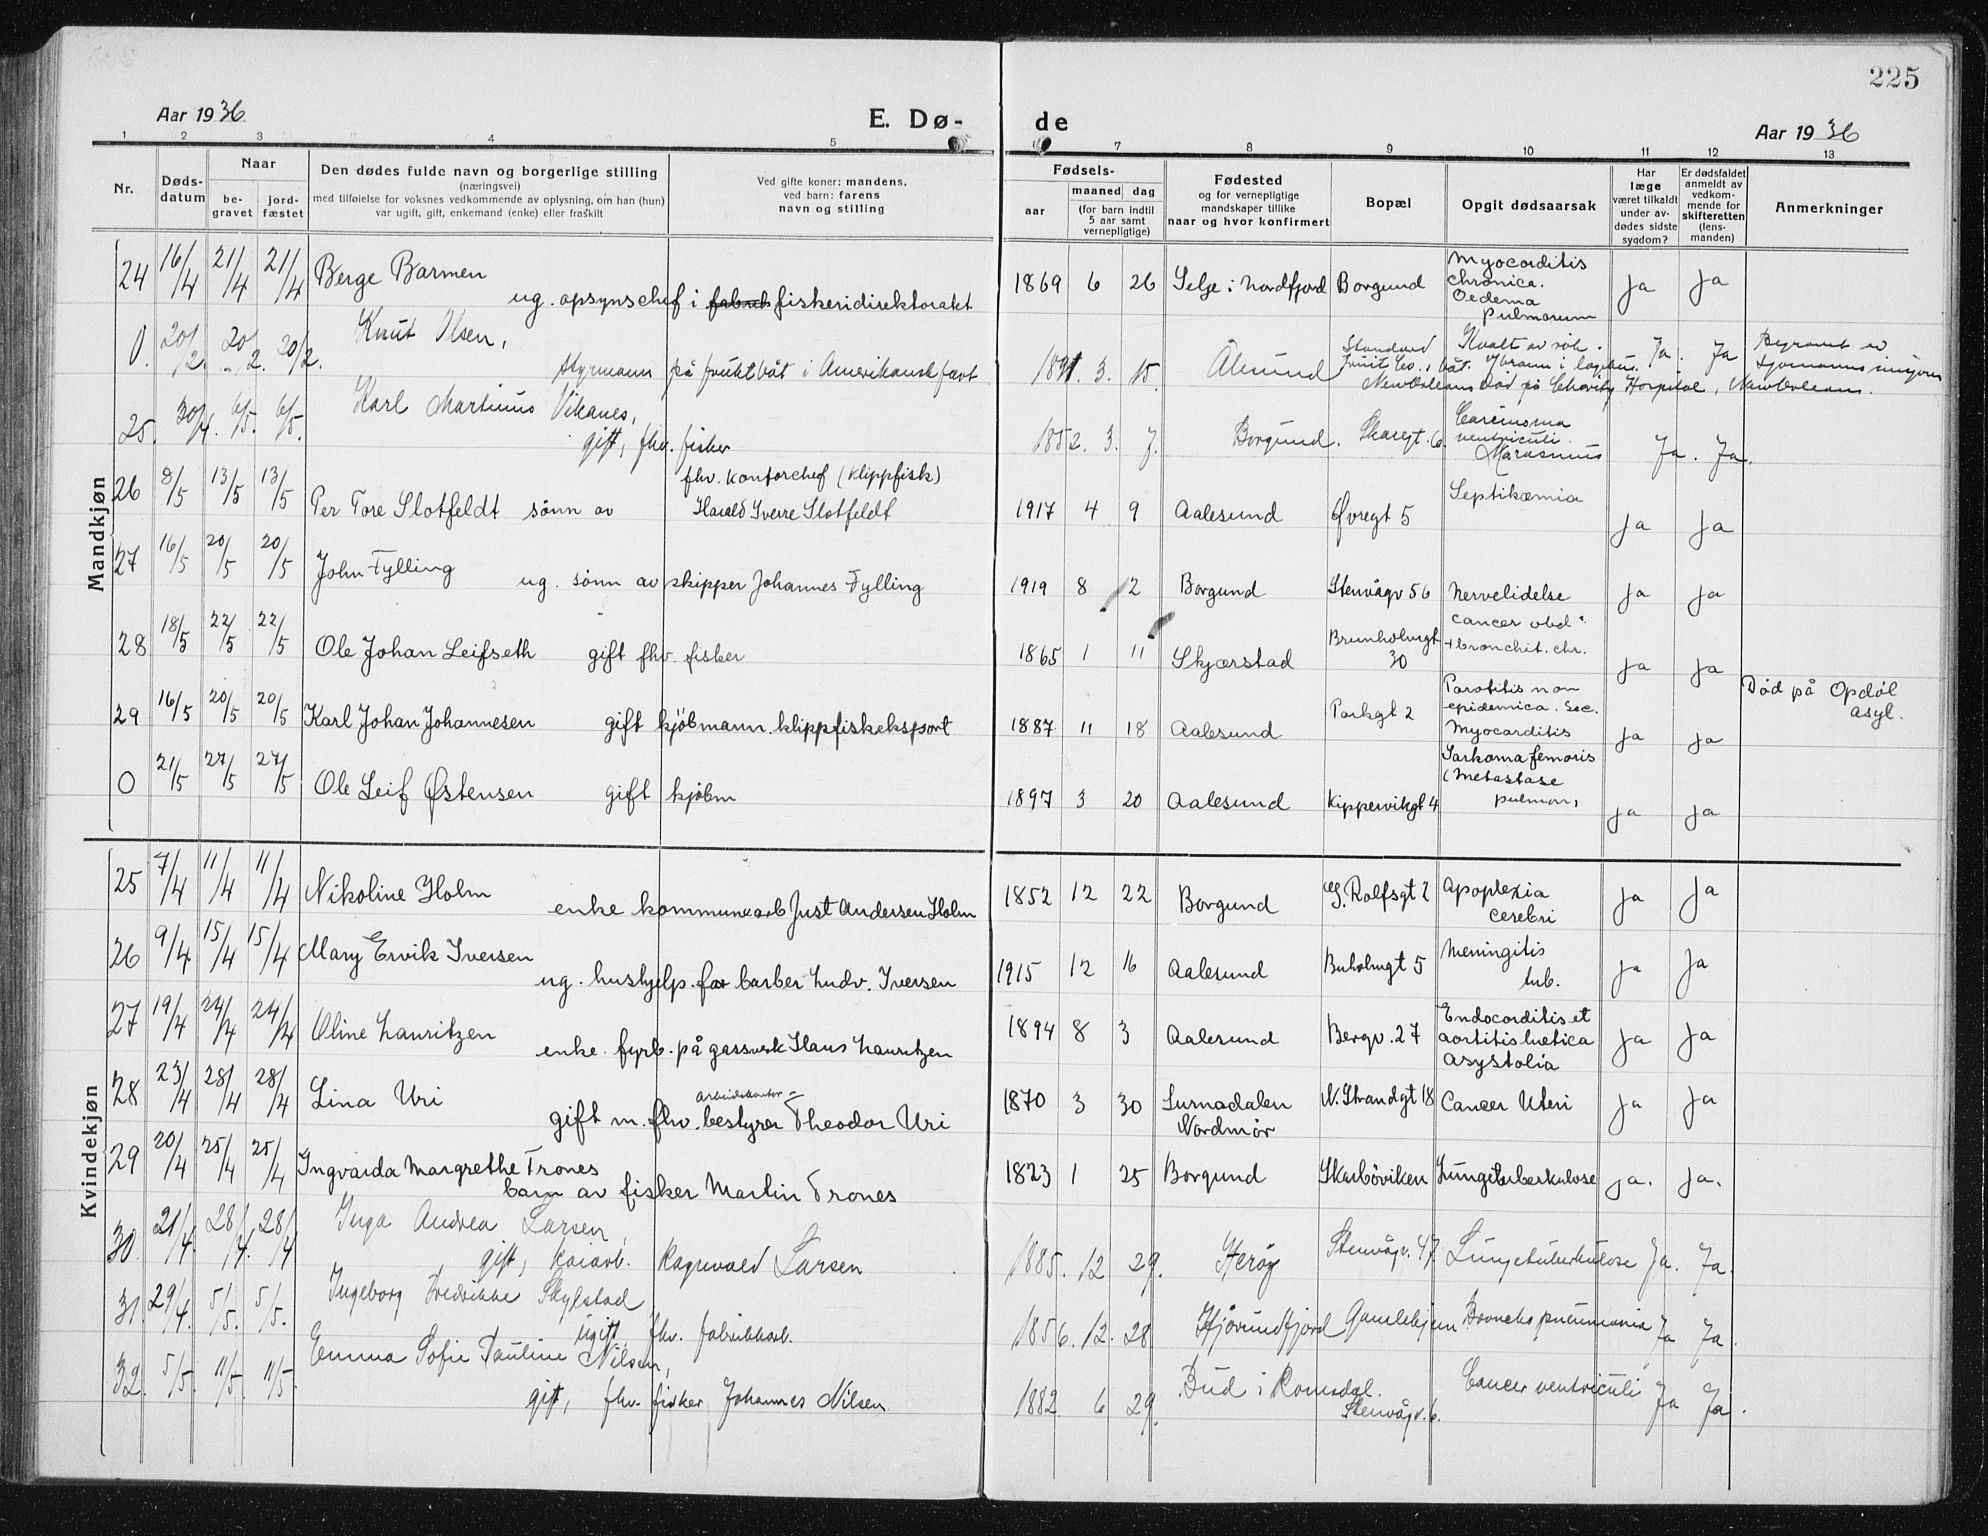 225
Aar 1936 E. Dø- de Aar 1936
1 2 3 4 5 7 8 9 10 11 12 13
Nr. Døds-datum Naar be-gravet jord-fæstet Den dødes fulde navn og borgerlige stilling (næringsvei) med tilføielse for voksnes vedkommende av oplysning, om han (hun) var ugift, gift, enkemand (enke) eller fraskilt Ved gifte koner: mandens, ved barn: farens navn og stilling Fødsels- aar maaned dag (for barn indtil 5 aar samt vernepligtige) Fødested og for vernepligtige mandskaper tillike naar og hvor konfirmert Bopæl Opgit dødsaarsak Har læge været tilkaldt under av-dødes sidste sygdom? Er dødsfaldet anmeldt av vedkom-mende for skifteretten (lens-manden) Anmerkninger
Mandkjøn
24 16/4 21/4 21/4 Berge Barmen ug. opsynschef i fiskeridirektoratet 1869 6 26 Selje i Nordfjord Borgund Myocarditis chronica. Oedema pulmorum Ja Ja
0. 20/2. 20/2. 20/2. Knut Olsen, styrmann på fruktbåt i Amerikansk fart 1891. 3. 15. Ålesund Standard Fruit Co., New Orleans Kvalt av røk. Død på Charity Hospital, New Orleans. Ja. Ja
25. 30/4. 6/5. 6/5. Karl Martinus Vikanes, gift, fhv. fisker 1852. 3. 7. Borgund. Skaregt. 6. Carcinoma ventriculi. Marasmus Ja. Ja.
26 8/5 13/5 13/5 Per Tore Slotfeldt sønn av fhv. kontorchef (klippfisk) Harald Sverre Slotfeldt 1917 4 9 Aalesund Øvregt 5 Septikæmia Ja Ja
27 16/5 20/5 20/5 John Fylling ug. sønn av skipper Johannes Fylling 1919 8 2 Borgund Stenvågv 56 Nervelidelse Ja Ja
28 18/5 22/5 22/5 Ole Johan Leifseth gift fhv. fisker 1865 1 11 Skjærstad Brunholmgt 30 Cancer abd. + bronchit. chr. Ja Ja
29 16/5 20/5 20/5 Karl Johan Johannesen gift kjøbmann. klippfiskeksport 1887 11 18 Aalesund Parkgt 2 Parotitis non epidemica. Sec. Myocarditis Ja Ja Død på Opdøl asyl.
0 21/5 27/5 27/5 Ole Leif Østensen gift kjøbm 1897 3 20 Aalesund Kippervikgt 4 Sarkoma femoris (Metastase pulmon, Ja Ja
Kvindekjøn
25 7/4 11/4 11/4 Nikoline Holm enke kommunearb Just Andersen Holm 1852 12 22 Borgund G. Rolfsgt 2 Apoplexia cerebri Ja Ja
26 9/4 15/4 15/4 Mary Ervik Iversen ug. hushjelp. far barber Ludv. Iversen 1915 12 16 Aalesund Buholmgt 5 Meningitis tub. Ja Ja
27 19/4 24/4 24/4 Oline Lauritzen enke. fyrb. på gassverk Hans Lauritzen 1894 8 3 Aalesund Bergv. 27 Endocarditis et aortitis luetica asystolia Ja Ja
28 23/4 28/4 28/4 Lina Uri gift m. fhv. arbeidskontor bestyrer Theodor Uri 1870 3 30 Surnadalen Nordmør N. Strandgt 18 Cancer Uteri Ja Ja
29 20/4 25/4 25/4 Ingvarda Margrethe Trones barn av fisker Martin Trones 1823 1 25 Borgund Skarbøviken Lungetuberkulose Ja. Ja.
30. 21/4. 28/4. 28/4 Inga Andrea Larsen, gift, kaiarb. Ragnvald Larsen 1885. 12 29. Herøy Stenvågv. 47. Lungetuberkulose Ja. Ja.
31. 29/4. 5/5. 5/5. Ingeborg Fredrikke Skylstad ugift, fhv. fabrikkarb. 1856. 12. 28 Hjørundfjord Gamlehjem Bronchopneumonia Ja Ja.
32. 5/5. 11/5. 11/5. Emma Sofie Pauline Nilsen, gift, fhv. fisker Johannes Nilsen. 1882. 6 29. Bud i Romsdal. Stenvågv. 6. Cancer ventriculi Ja Ja.